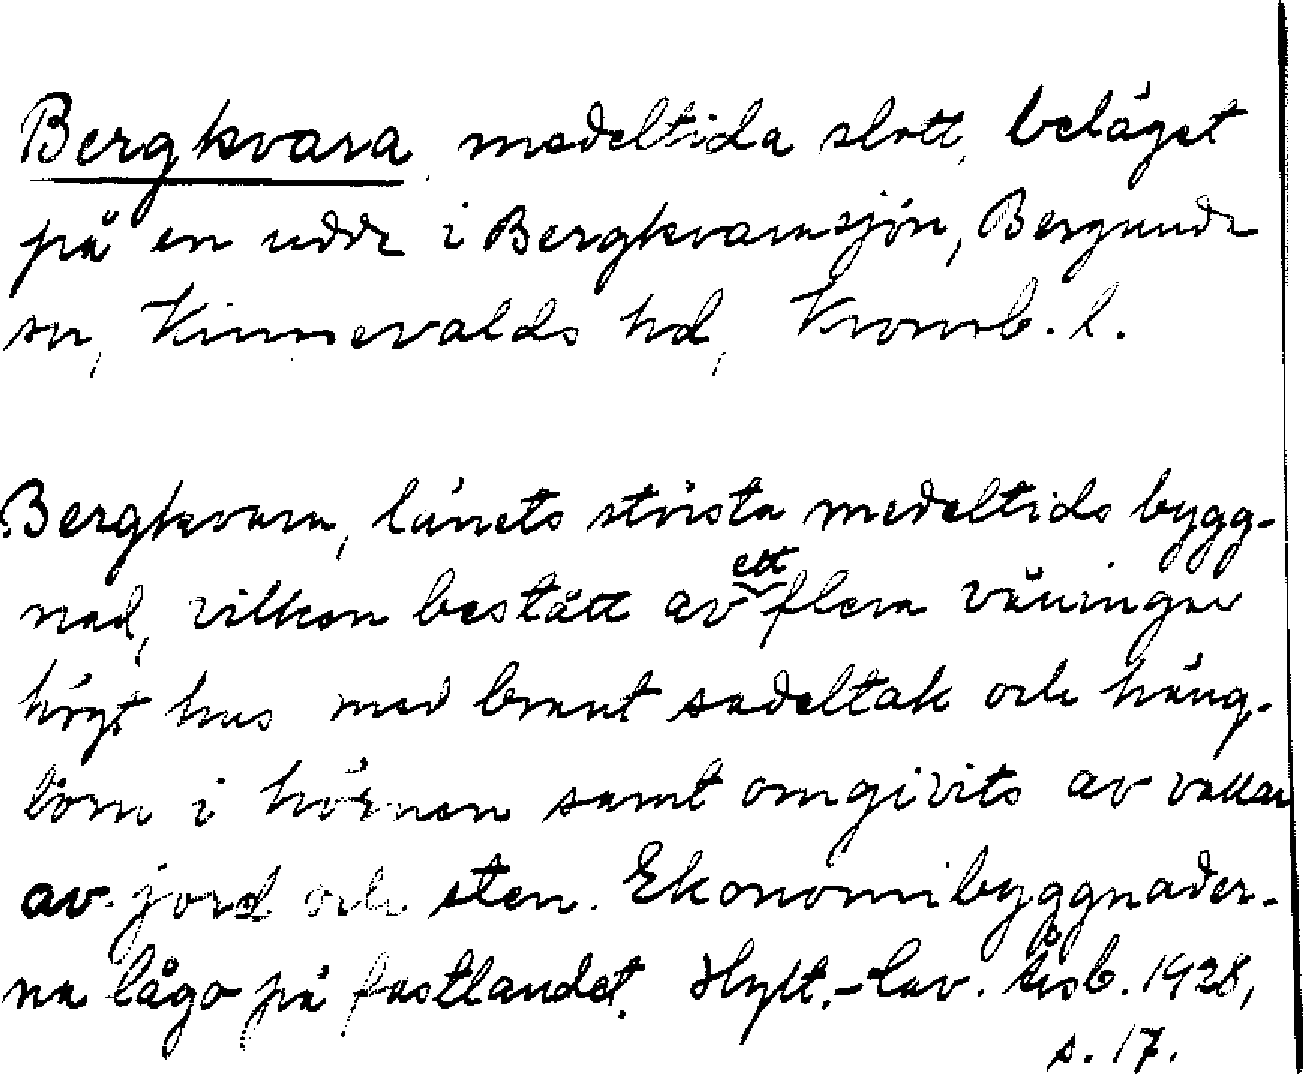 Bergkvara, medeltida slott, beläget
på en udde i Bergkvarasjön, Bergunda
sn, Kinnevalds hd, Kronob. l.
Bergkvara, länets största medeltids bygg-
nad, vilken bestått av ett flera våningar
högt hus med brant sadeltak och häng-
torn i hörnen samt omgivits av vallar
av jord och sten. Ekonomibyggnader-
na lågo på fastlandet. Hylt.-Cav. årsb. 1928,
s. 17.